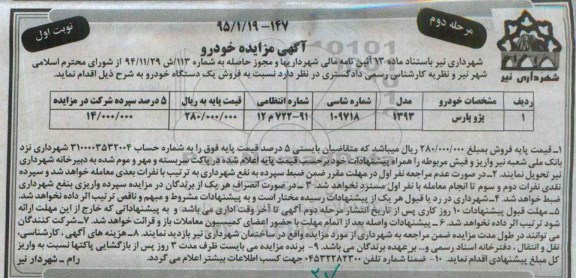 مرحله دوم
۹۵/۱/۱۹-۱۴۷
نوبت اول
آگهی مزایده خودرو
شهرداری نیر
شهرداری نیر باستناد ماده ۱۳ آئین نامه مالی شهرداریها و مجوز حاصله به شماره ۱۱۳/ش ۹۴/۱۱/۲۹ از شورای محترم اسلامی
شهر نیر و نظریه کارشناس رسمی دادگستری در نظر دارد نسبت به فروش یک دستگاه خودرو به شرح ذیل اقدام نماید.
ردیف مشخصات خودرو مدل شماره شاسی شماره انتظامی قیمت پایه به ریال ۵ درصد سپرده شرکت در مزایده
۱ پژو پارس ۱۳۹۳ ۱۰۹۷۱۸ ۹۱-۷۲۲م۱۲ ۲۸۰/۰۰۰/۰۰۰ ۱۴/۰۰۰/۰۰۰
۱- قیمت پایه فروش بمبلغ ۲۸۰/۰۰۰/۰۰۰ ریال میباشد که متقاضیان بایستی ۵ درصد قیمت پایه فوق را به شماره حساب ۳۱۰۰۰۰۳۵۳۲۰۰۴ شهرداری نزد
بانک ملی شعبه نیر واریز و فیش مربوطه را همراه پیشنهادات خود برحسب قیمت پایه اعلام شده در پاکت سربسته و مهر و موم شده به دبیرخانه شهرداری
نیر تحویل نمایند. ۲- در صورت عدم مراجعه نفر اول در مهلت مقرر ضمن ضبط سپرده به نفع شهرداری به ترتیب با نفرات بعدی معامله خواهد شد و سپرده
نقدی نفرات دوم و سوم تا انجام معامله با نفر اول مسترد نخواهد شد. ۳- در صورت انصراف هر یک از برندگان در مزایده سپرده واریزی بنفع شهرداری
ضبط خواهد شد. ۴- شهرداری در رد یا قبول هر یک از پیشنهادات رسیده مختار است و به پیشنهادات مشروط و مبهم و ناقص ترتیب اثر داده نخواهد شد.
۵- مهلت قبول پیشنهادات ۱۰ روز کاری پس از تاریخ انتشار مرحله دوم آگهی تا آخر وقت اداری می باشد و به پیشنهاداتی که خارج از این مهلت ارائه
شود ترتیب اثر داده نخواهد شد. ۶- پیشنهادات واصله بعد از اتمام مهلت با حضور اعضای کمیسیون معاملات باز و قرائت خواهد شد. ۷- شرکت کنندگان
می توانند در طول مدت مزایده ضمن مراجعه به شهرداری از مورد مزایده واقع در ساختمان شهرداری نیر بازدید نمایند. ۸- هزینه های آگهی، کارشناسی،
نقل و انتقال، دفترخانه اسناد رسمی و.. بر عهده برنده می باشد. ۹- برنده مزایده می بایست ظرف مدت ۳ روز پس از بازگشایی پاکتها نسبت به واریز
کل مبلغ پیشنهادی اقدام نماید. ۱۰- ضمنا شماره تلفن ۰۴۵۳۲۲۸۲۳۰۰ جهت کسب اطلاعات بیشتر اعلام می گردد. رام - شهردار نیر